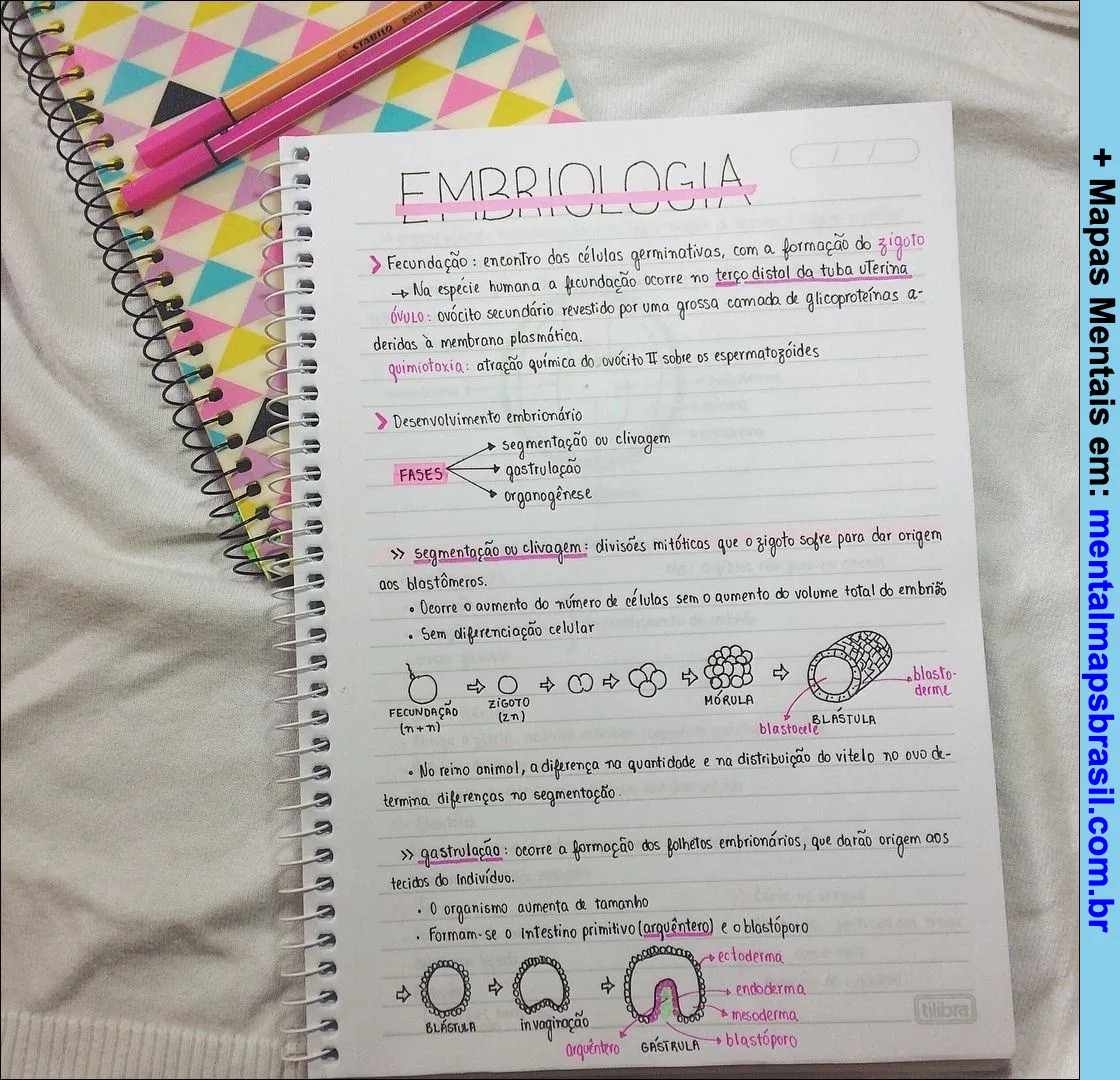 STABILO point 88
EMBRIOLOGIA
Fecundação: encontro das células germinativas, com a formação do zigoto
→ Na espécie humana a fecundação ocorre no terço distal da tuba uterina
ÓVULO: ovócito secundário revestido por uma grossa camada de glicoproteínas a-
deridas à membrana plasmática.
quimiotaxia: atração química do ovócito II sobre os espermatozóides
Desenvolvimento embrionário
FASES
segmentação ou clivagem
gastrulação
organogênese
>> segmentação ou clivagem: divisões mitóticas que o zigoto sofre para dar origem
aos blastômeros.
• Ocorre o aumento do número de células sem o aumento do volume total do embrião
• Sem diferenciação celular
FECUNDAÇÃO
(n+n)
ZIGOTO
(2n)
MÓRULA
BLÁSTULA
blastocele
blasto-
derme
• No reino animal, a diferença na quantidade e na distribuição do vitelo no ovo de-
termina diferenças na segmentação.
>> gastrulação: ocorre a formação dos folhetos embrionários, que darão origem aos
tecidos do indivíduo.
• O organismo aumenta de tamanho
• Formam-se o intestino primitivo (arquêntero) e o blastóporo
BLÁSTULA
invaginação
GÁSTRULA
ectoderma
endoderma
mesoderma
blastóporo
arquêntero
tilibra
+ Mapas Mentais em: mentalmapsbrasil.com.br